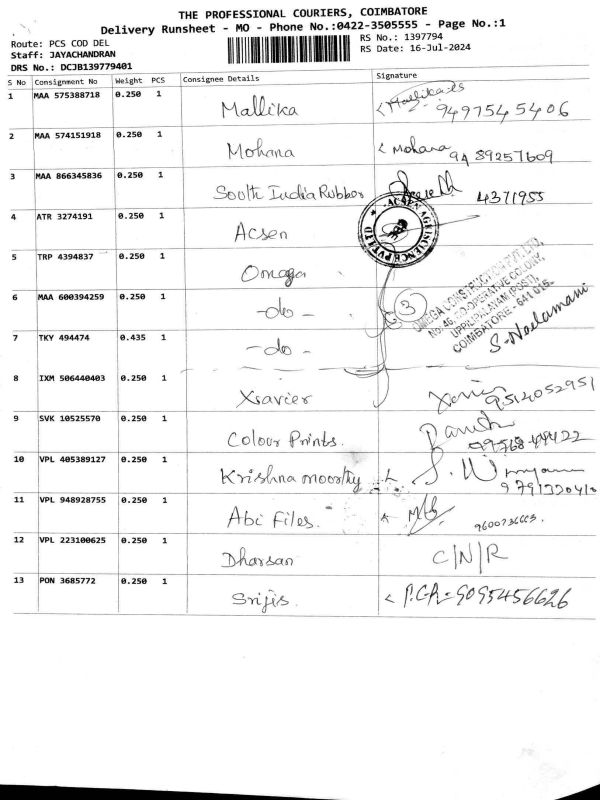 THE PROFESSIONAL COURIERS, COIMBATORE
Delivery Runsheet - MO - Phone No.:0422-3505555 - Page No.:1
Route: PCS COD DEL
RS No.: 1397794
Staff: JAYACHANDRAN
RS Date: 16-Jul-2024
DRS No.: DCJB139779401
S No Consignment No Weight PCS Consignee Details Signature
1 MAA 575388718 0.250 1 Mallika < Mallika 9497545406
2 MAA 574151918 0.250 1 Mohana < Mohana 9489257609
3 MAA 866345836 0.250 1 South India Rubber 4371955
4 ATR 3274191 0.250 1 Acsen
ACSEN AGRISCIENCE PVT LTD
5 TRP 4394837 0.250 1 Omega
6 MAA 600394259 0.250 1 -do- 3
OMEGA CONSTRUCTION PVT. LTD,
No: 46, CO-OPERATIVE COLONY,
UPPILIPALAYAM (POST),
COIMBATORE - 641 015.
7 TKY 494474 0.435 1 -do- S-Neelamani
8 IXM 506440403 0.250 1 Xsavier 9514052951
9 SVK 10525570 0.250 1 Colour Prints.
10 VPL 405389127 0.250 1 Krishna moorthy
11 VPL 948928755 0.250 1 Abi Files. 9600736663.
12 VPL 223100625 0.250 1 Dharsan C/N/R
13 PON 3685772 0.250 1 Srijis. < P.GR = 9095456626